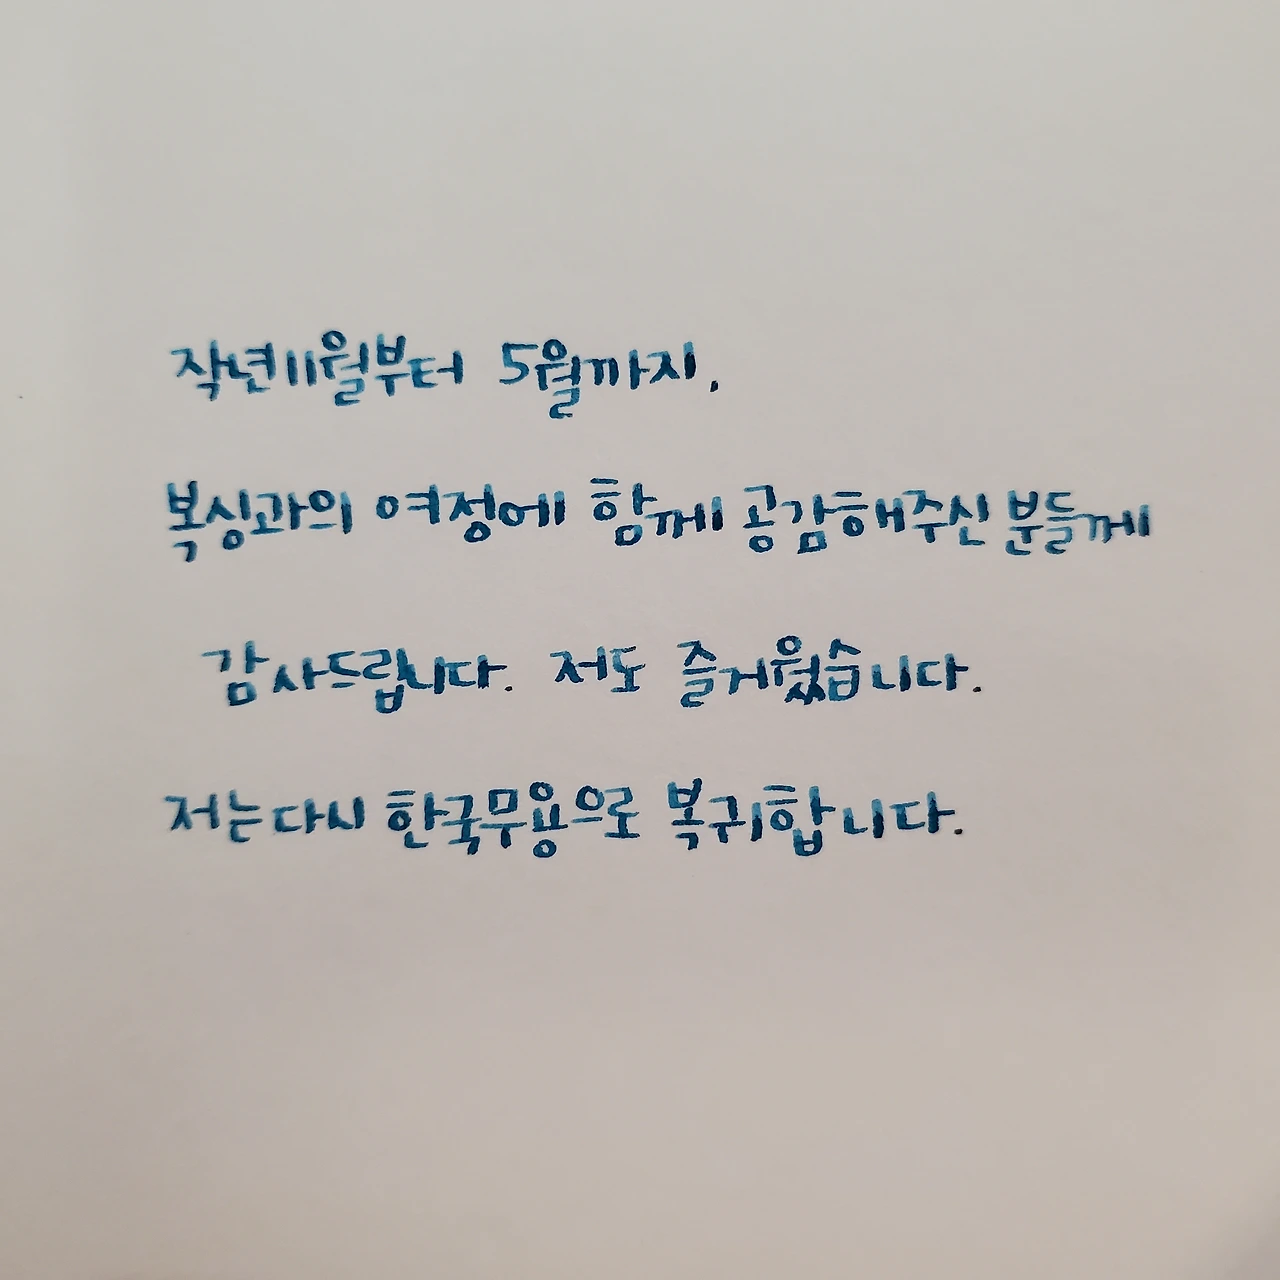 작년11월부터 5월까지,
복싱과의 여정에 함께 공감해주신 분들께
감사드립니다. 저도 즐거웠습니다.
저는다시 한국무용으로 복귀합니다.